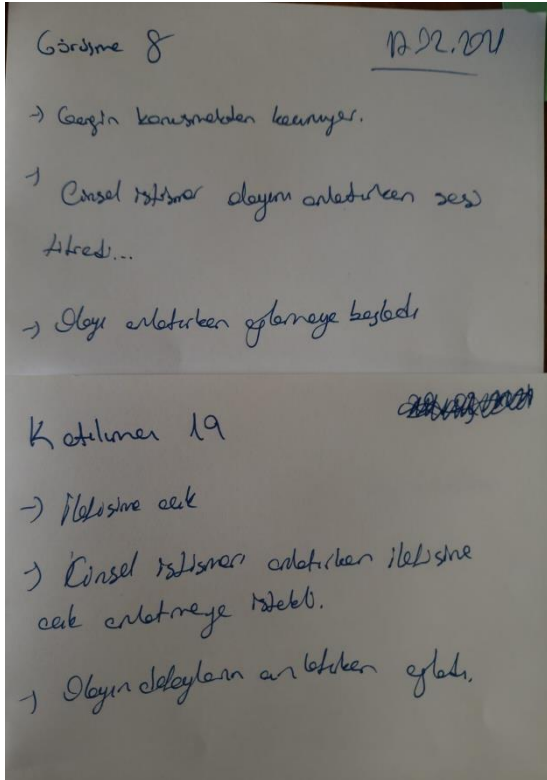 Görüşme 8
12.02.2021
→ Gergin konuşmaktan kaçınıyor.
→ Cinsel istismar olayını anlatırken sesi
titredi...
→ Olayı anlatırken ağlamaya başladı
Katılımcı 19
→ İletişime açık
→ Cinsel istismarı anlatırken iletişime
açık anlatmaya istekli.
→ Olayın detaylarını anlatırken ağladı.